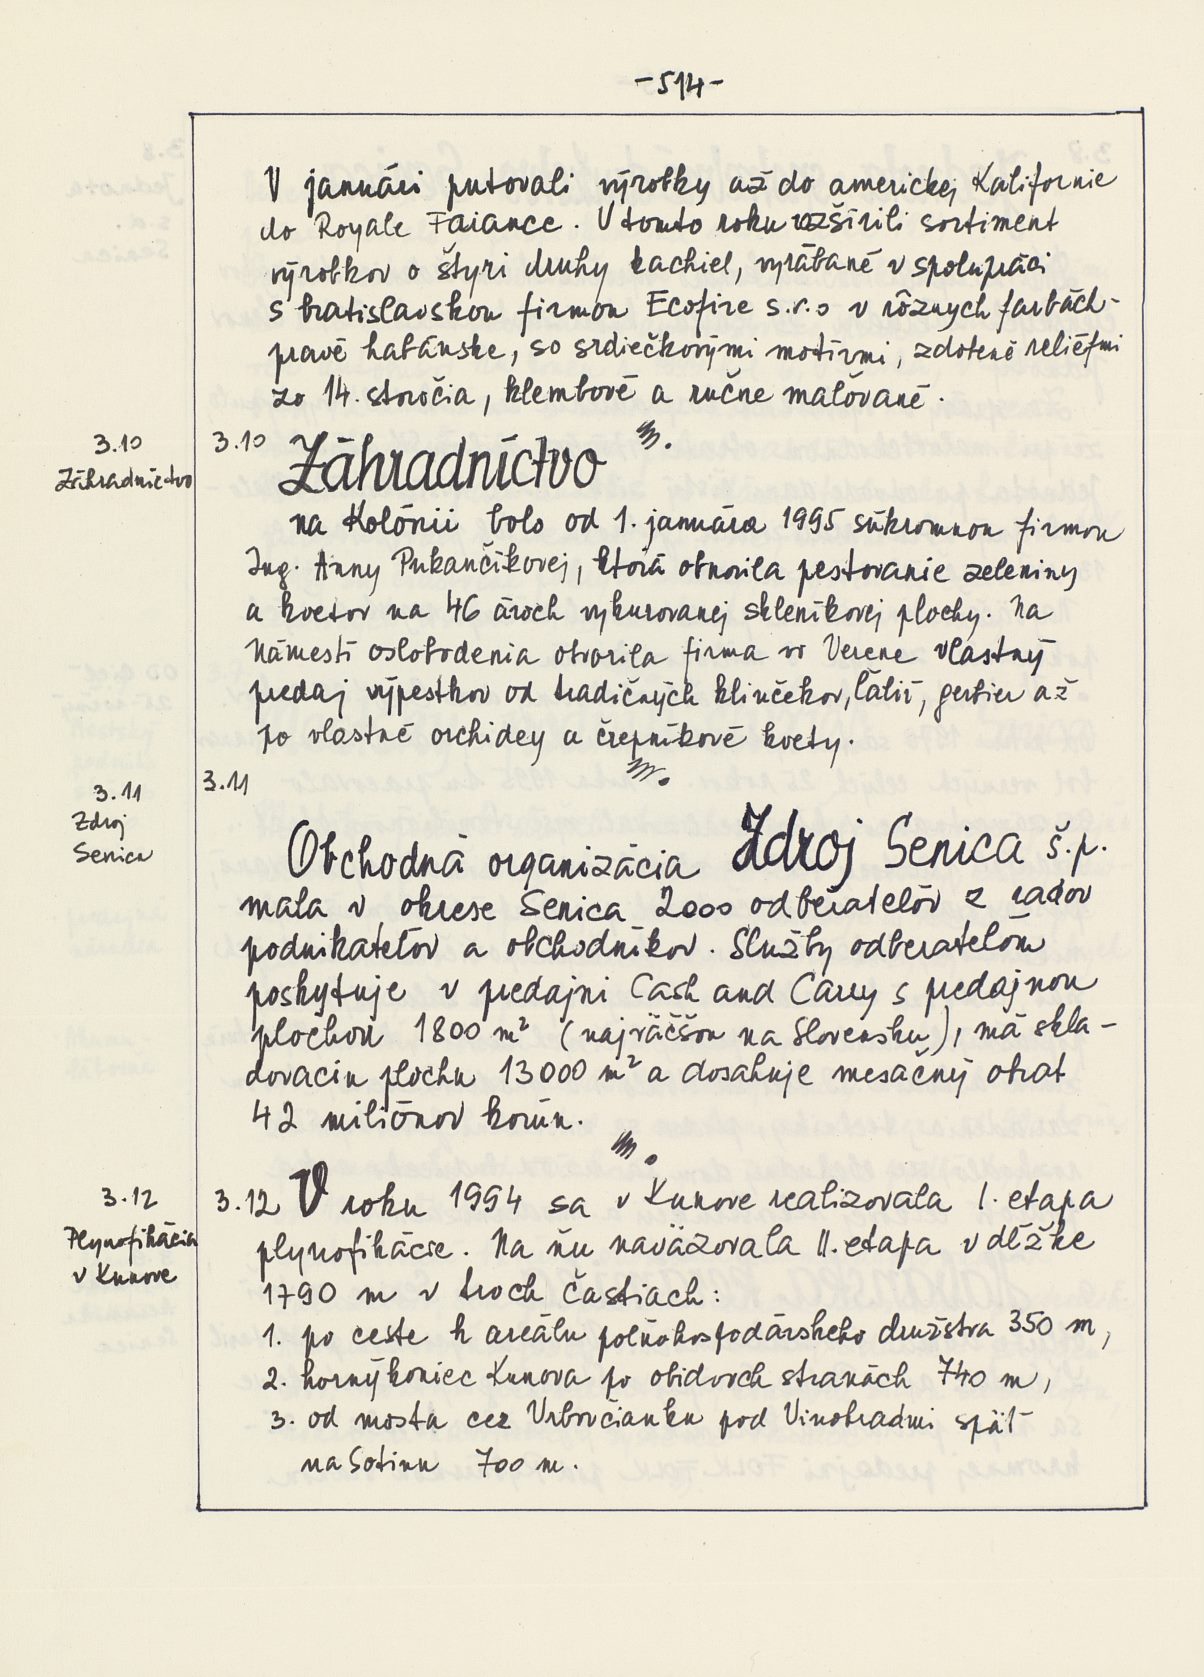 -514-
V januári putovali výrobky až do americkej Kalifornie
do Royale Faiance. V tomto roku rozšírili sortiment
výrobkov o štyri druhy kachiel, vyrábané v spolupráci
s bratislavskou firmou Ecofire s.r.o v rôznych farbách-
pravé habánske, so srdiečkovými motívmi, zdobené reliéfmi
zo 14. storočia, klembové a ručne maľované.
3.10
Záhradníctvo
3.10 Záhradníctvo
na Kolónii bolo od 1. januára 1995 súkromnou firmou
Ing. Anny Pukančíkovej, ktorá obnovila pestovanie zeleniny
a kvetov na 46 ároch vykurovanej skleníkovej plochy. Na
Námestí oslobodenia otvorila firma vo Verene vlastný
predaj výpestkov od tradičných klinčekov, ľálií, gerbier až
po vlastné orchidey a črepníkové kvety.
3.11
Zdroj
Senica
3.11
Obchodná organizácia Zdroj Senica š.p.
mala v okrese Senica 2000 odberateľov z radov
podnikateľov a obchodníkov. Služby odberateľom
poskytuje v predajni Cash and Carry s predajnou
plochou 1800 m² (najväčšou na Slovensku), má skla-
dovaciu plochu 13000 m² a dosahuje mesačný obrat
42 miliónov korún.
3.12
Plynofikácia
v Kunove
3.12 V roku 1994 sa v Kunove realizovala I. etapa
plynofikácie. Na ňu naväzovala II. etapa v dĺžke
1790 m v troch častiach:
1. po ceste k areálu poľnohospodárskeho družstva 350 m,
2. horný koniec Kunova po obidvoch stranách 740 m,
3. od mosta cez Vrbovčianku pod Vinohradmi späť
na Sotinu 700 m.